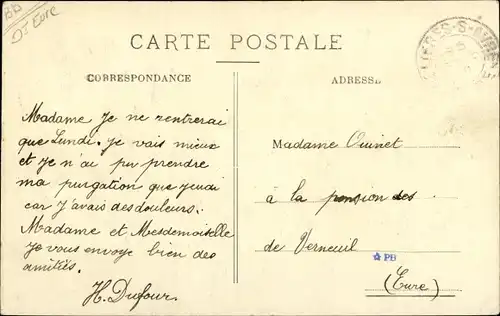 BB
Dt Eure
CARTE POSTALE
LIERES-S-AVRE
CORRESPONDANCE
ADRESSE
Madame Je ne rentrerai
que Lundi. je vais mieux
et je n'ai pu prendre
ma purgation que jeudi
car j'avais des douleurs.
Madame et Mesdemoiselle
Je vous envoye bien des
amitiés.
H. Dufour.
Madame Ouinet
à la pension des
de Verneuil
PB
(Eure)